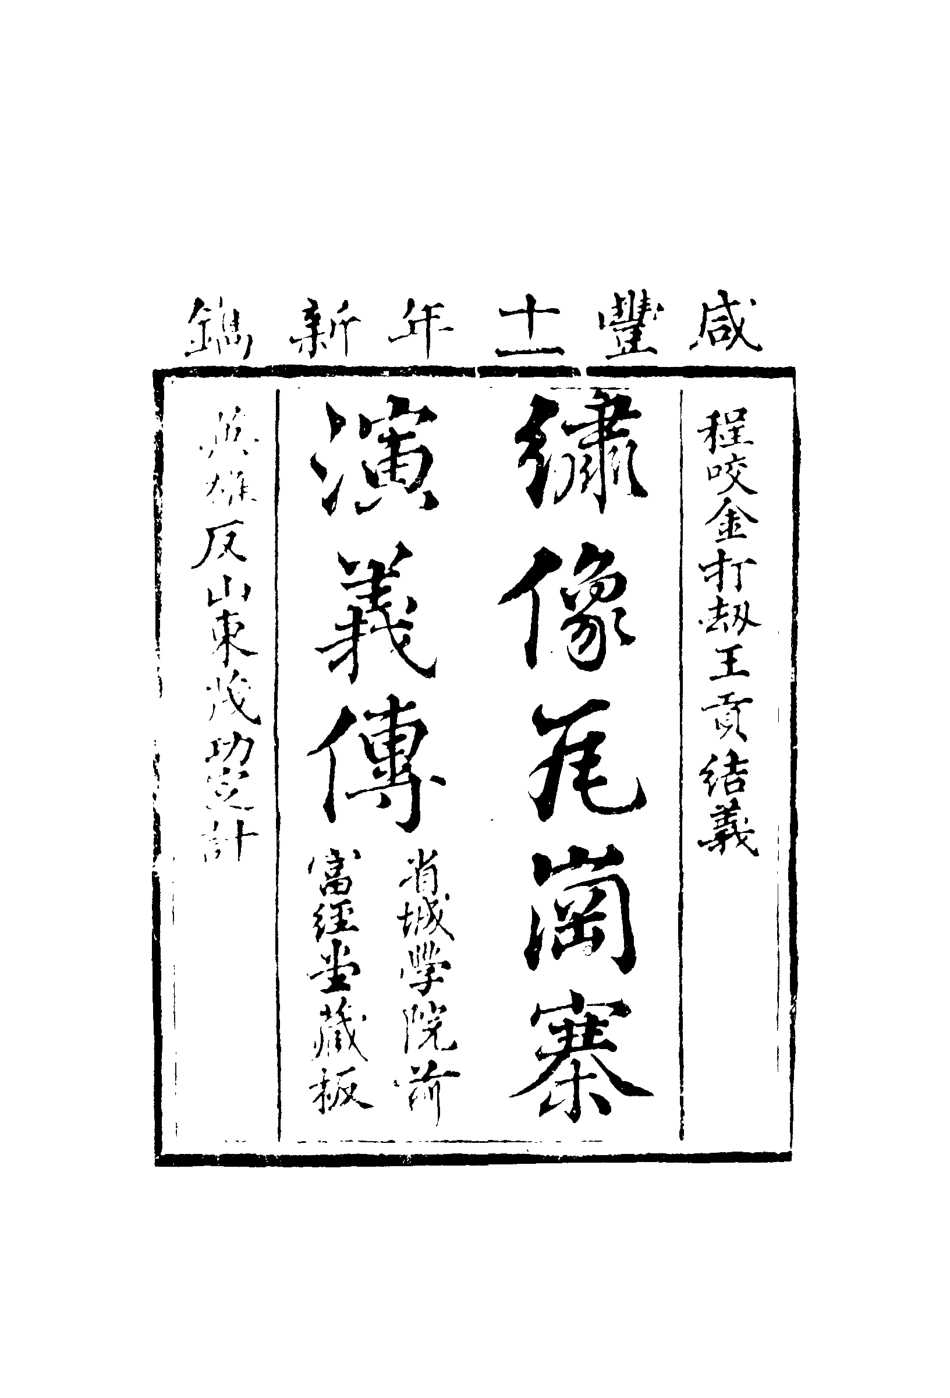 咸豐十一年新鐫
程咬金打刼王貢結義
繡像瓦崗寨
演義傳
省城學院前
富經堂藏板
英雄反山東茂功定計